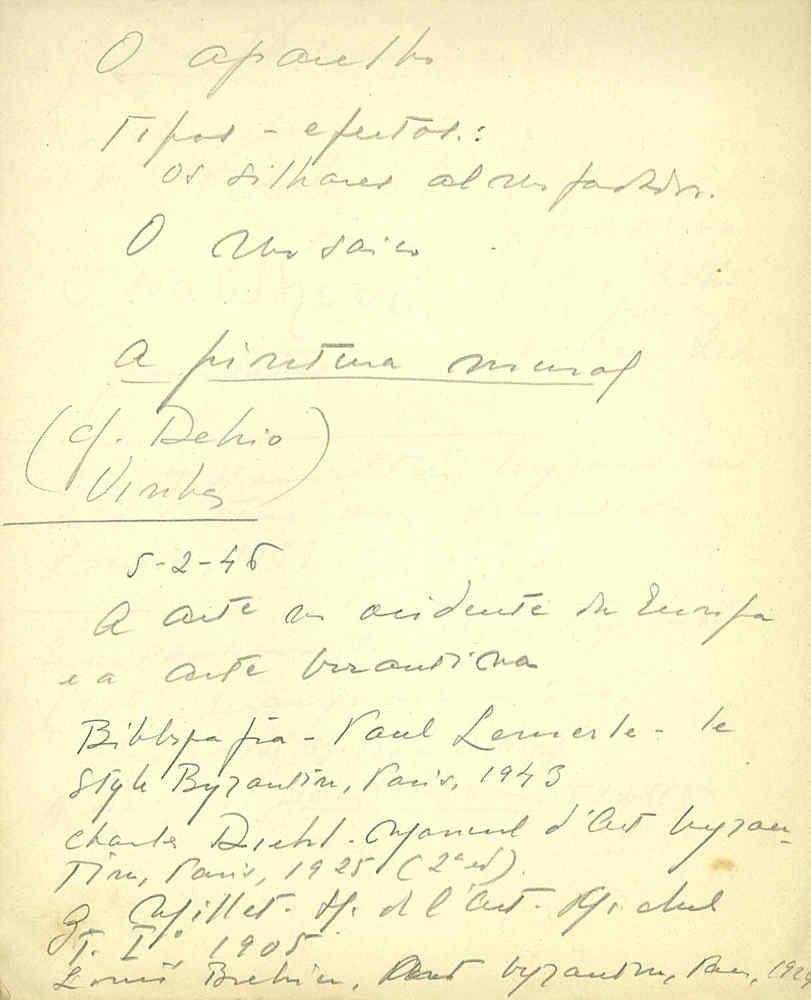 O aparelho
Tipos - efeitos.:
Os silhares almofadados.
O mosaico
A pintura mural
(cf. Dehio)
5-2-46
A arte no ocidente da Europa
e a arte bizantina
Bibliografia - Paul Lemerle - le
Style Byzantin, Paris, 1943
Charles Diehl - Manuel d'Art byzan-
tin, Paris, 1925 (2ª ed).
G. Millet - H. de l'Art - Michel
T. I, 1905
Louis Brehier, l'Art byzantin, Paris,